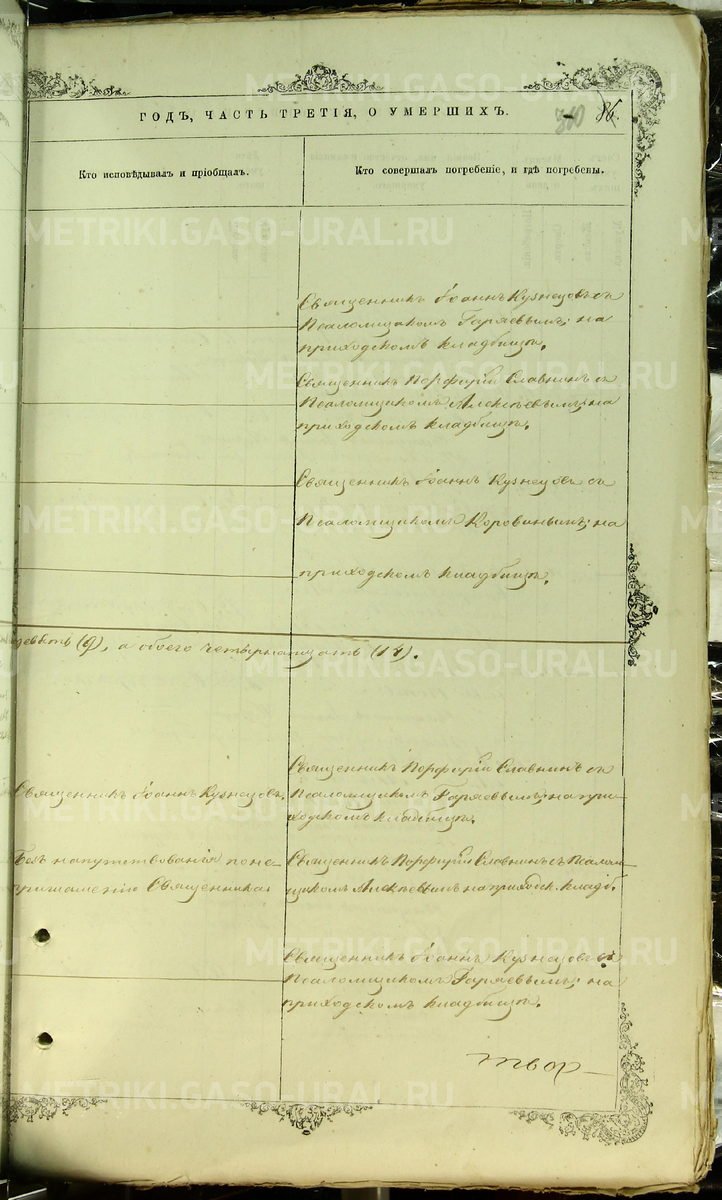 ГОДЪ, ЧАСТЬ ТРЕТІЯ, О УМЕРШИХЪ.
310 86.
Кто исповѣдывалъ и пріобщалъ.
Кто совершалъ погребеніе, и гдѣ погребены.
Священникъ Іоаннъ Кузнецовъ съ
Псаломщикомъ Гаряевымъ; на
приходскомъ кладбищѣ.
Священникъ Порфирій Славнинъ съ
Псаломщикомъ Алексѣевымъ; на
приходскомъ кладбищѣ.
Священникъ Іоаннъ Кузнецовъ съ
Псаломщикомъ Коровинымъ; на
приходскомъ кладбищѣ.
девять (9), а обоего четырнадцать (14).
Священникъ Іоаннъ Кузнецовъ.
Священникъ Порфирій Славнинъ съ
Псаломщикомъ Гаряевымъ; на при-
ходскомъ кладбищѣ.
Безъ напутствованія по не-
пригашенію Священника.
Священникъ Порфирій Славнинъ съ Псалом-
щикомъ Алексѣевымъ на приходск. кладб.
Священникъ Іоаннъ Кузнецовъ съ
Псаломщикомъ Гаряевымъ; на
приходскомъ кладбищѣ.
METRIKI.GASO-URAL.RU